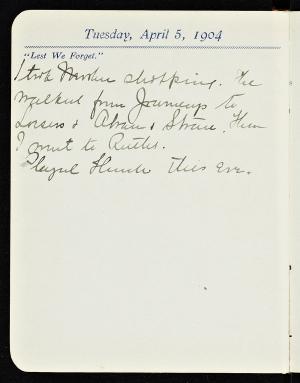 Tuesday, April 5, 1904
"Lest We Forget."
I took shopping. We
walked from Journeays to
Loesers & Abram & Straus. Then
I went to Ruths.
Played this eve.